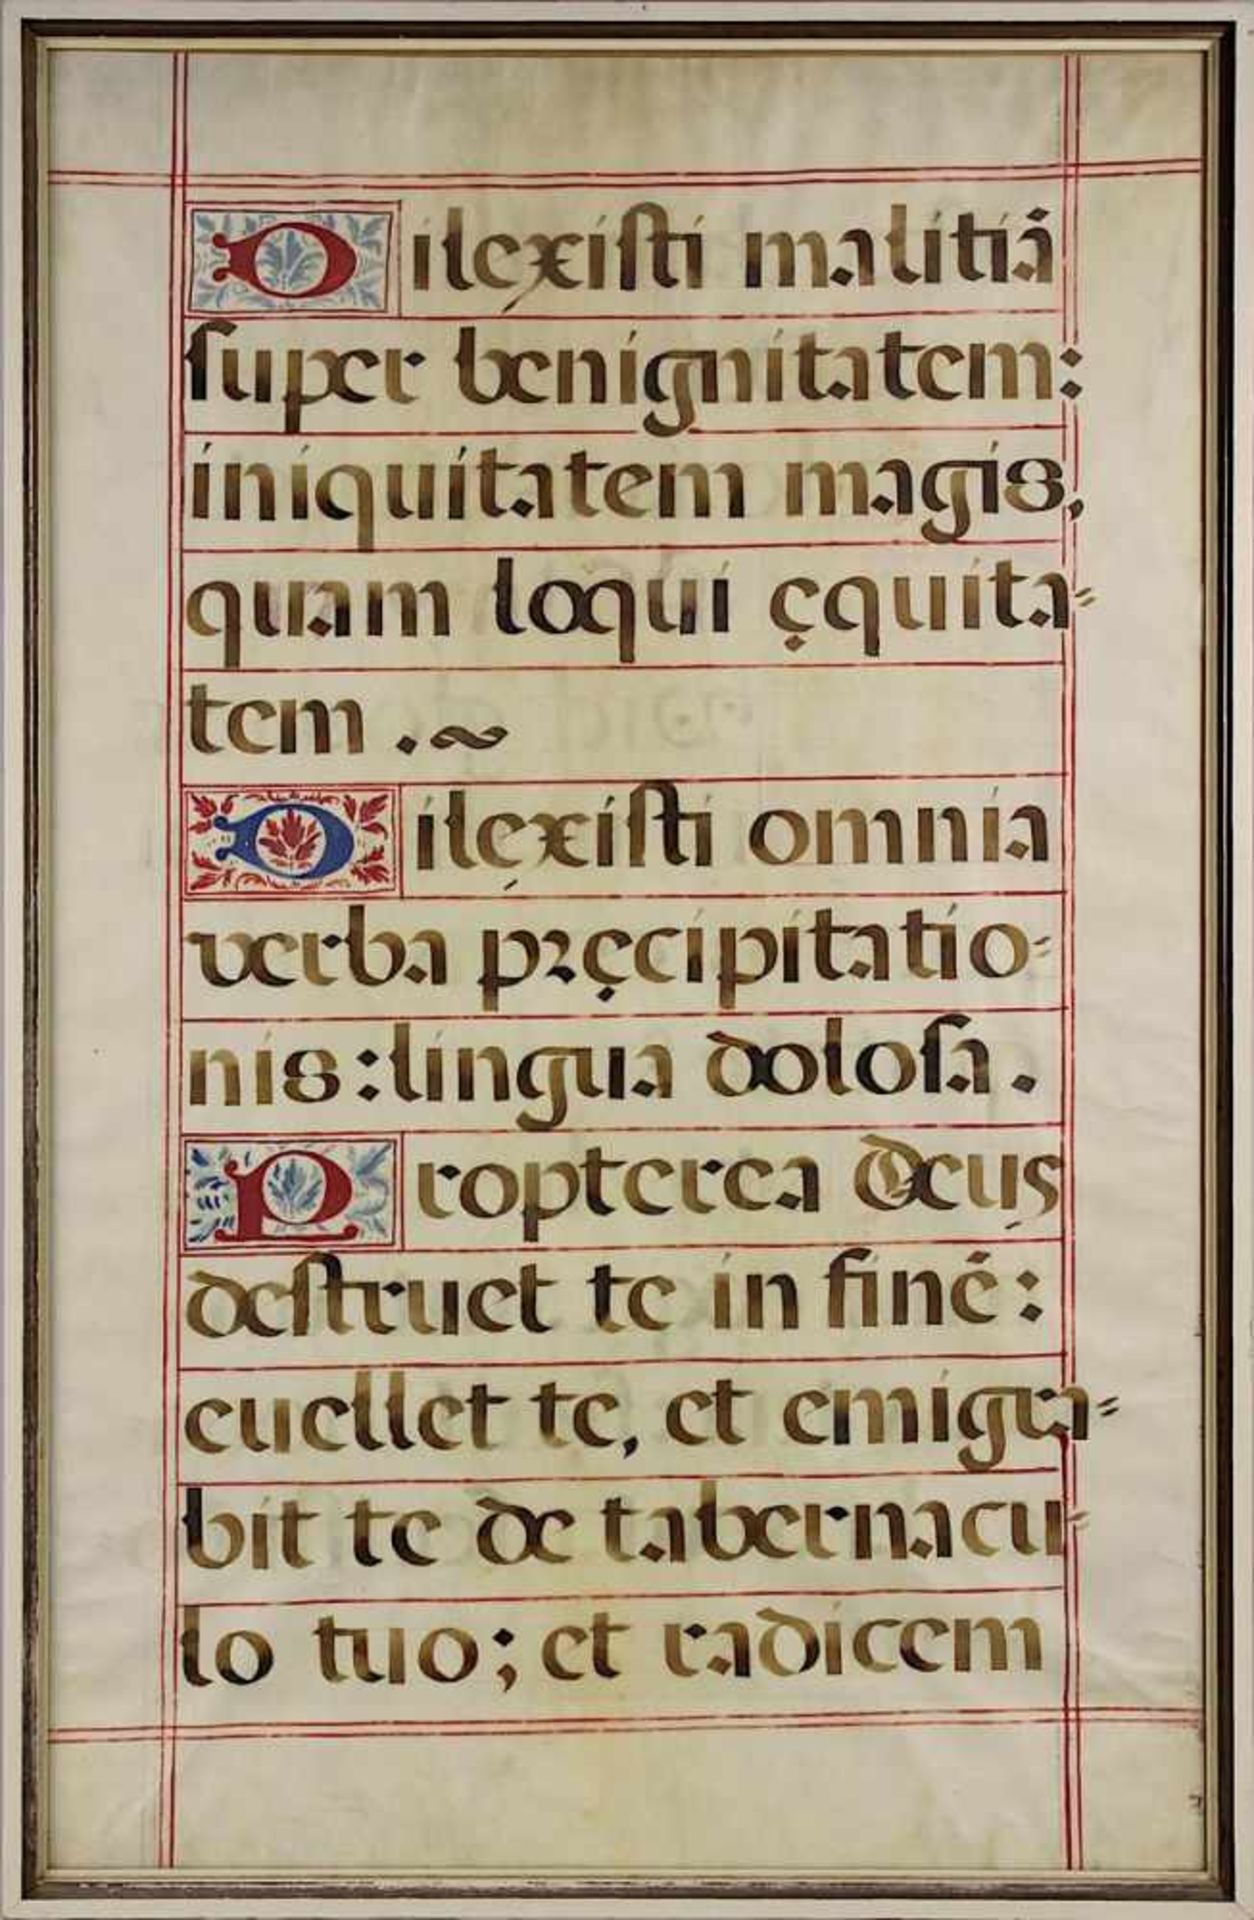 Dilexiſti malitiā
ſuper benignitatem:
iniquitatem magis,
quam loqui ęquita=
tem . ~
Dilęxiſti omnia
verba pręcipitatio=
nis: lingua doloſa .
Propterea Deus
deſtruet te in finē:
euellet te, et emigra=
bit te de tabernacu=
lo tuo; et radicem